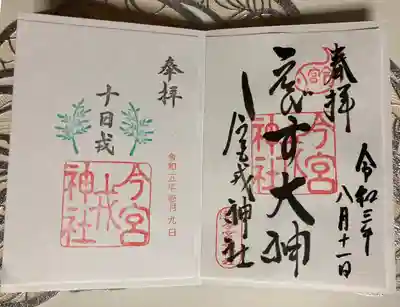 奉拝
令和三年
八月十一日
ゑびす大神
今宮戎神社
今宮
戎
神社
奉拝
十日戎
令和五年壱月九日
今宮
戎
神社